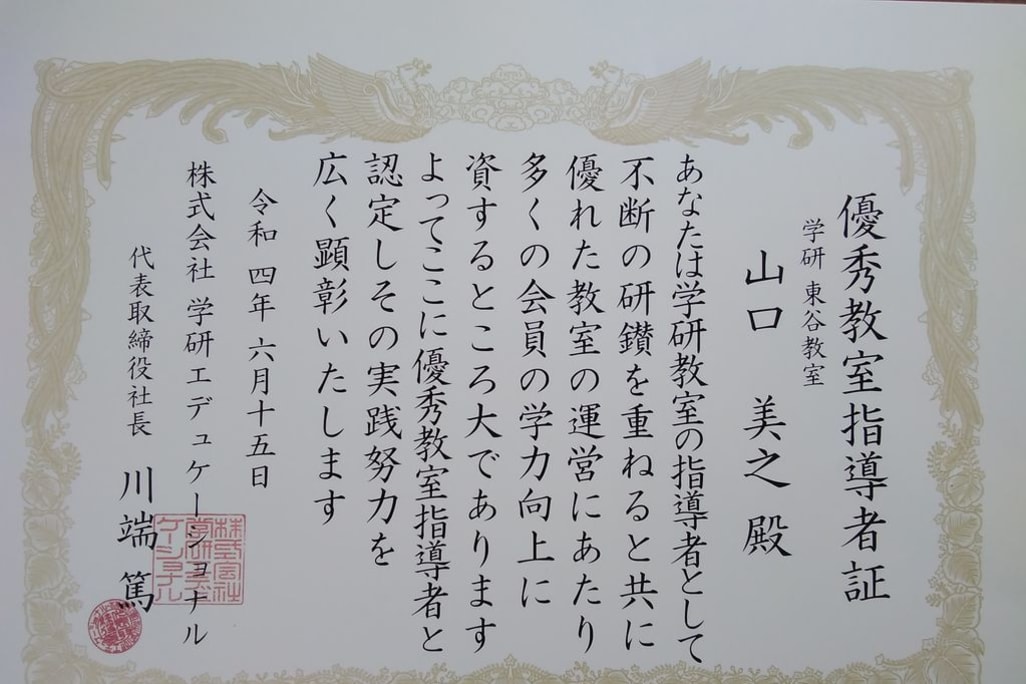 優秀教室指導者証
学研 東谷教室
山口 美之 殿
あなたは学研教室の指導者として
不断の研鑽を重ねると共に
優れた教室の運営にあたり
多くの会員の学力向上に
資するところ大であります
よってここに優秀教室指導者と
認定しその実践努力を
広く顕彰いたします
令和 四年 六月十五日
株式会社 学研エデュケーショナル
代表取締役社長 川端 篤
株式会社
学研エデュ
ケーショナル